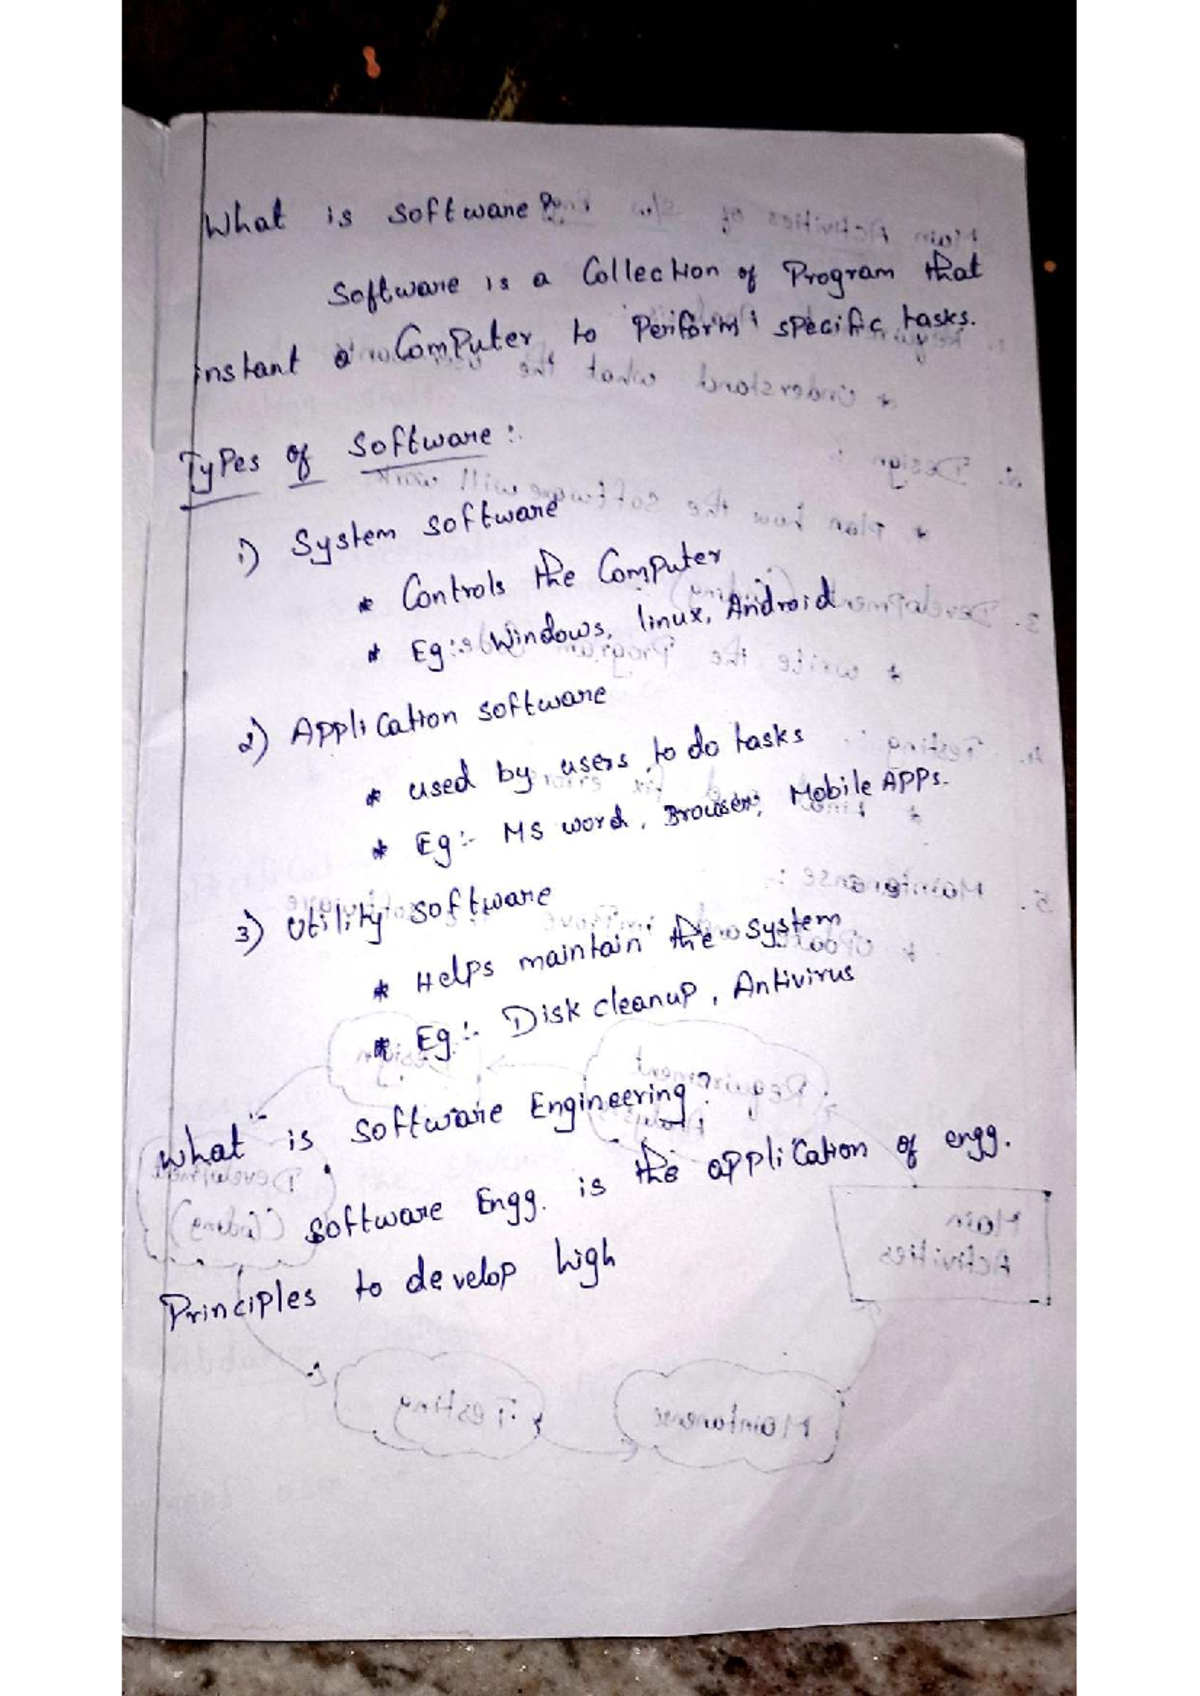 What is software?
Software is a Collection of Program that
instant a Computer to Perform specific tasks.
Types of Software :-
1) System software
* Controls the Computer
* Eg :- Windows, linux, Android
2) Application software
* used by users to do tasks
* Eg :- MS word, Browser, Mobile APPs.
3) Utility software
* Helps maintain the system
* Eg :- Disk cleanup, Antivirus
What is Software Engineering?
Software Engg. is the application of engg.
Principles to develop high